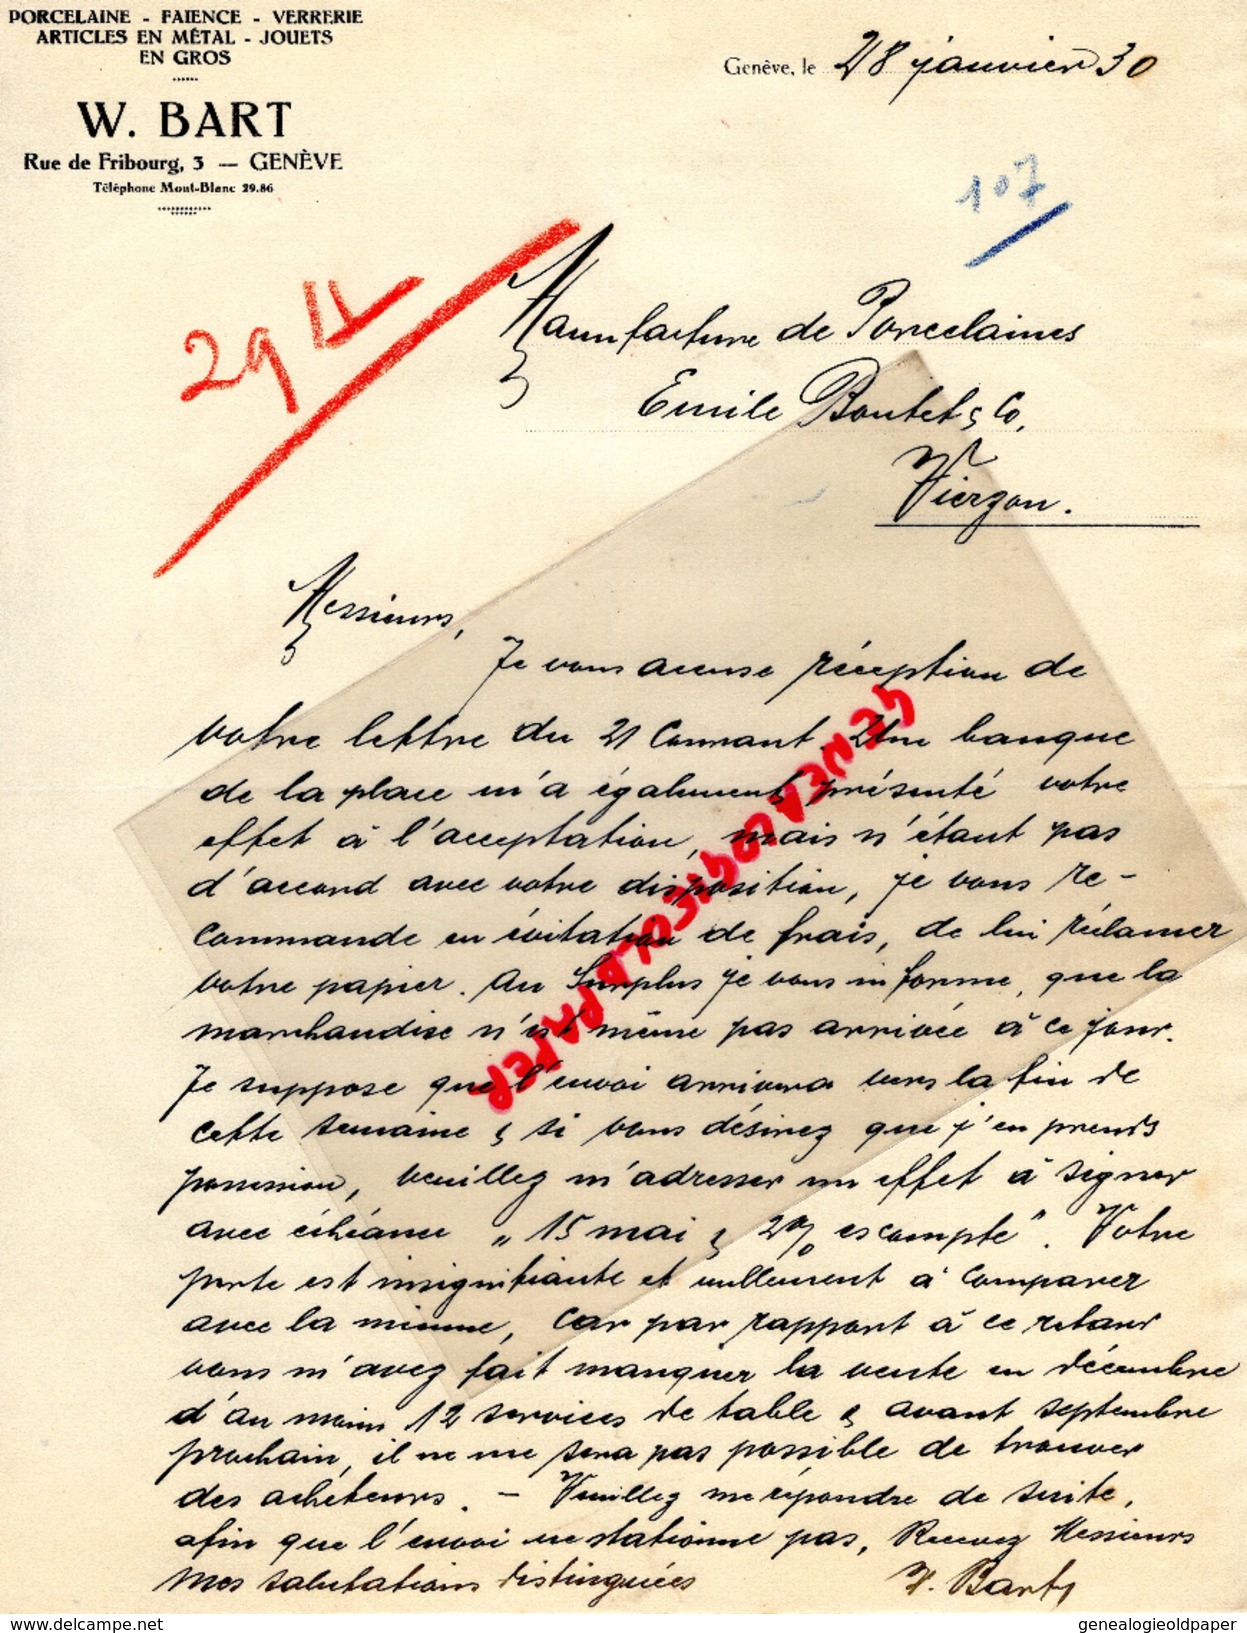 PORCELAINE - FAIENCE - VERRERIE
ARTICLES EN MÉTAL - JOUETS
EN GROS
W. BART
Rue de Fribourg, 3 — GENÈVE
Téléphone Mont-Blanc 29.86
Genève, le 28 janvier 30
107
29
Manufacture de Porcelaines
Emile Boutet & Co,
Vierzon.
Messieurs,
Je vous accuse réception de
votre lettre du 21 Courant. Une banque
de la place m'a également présenté votre
effet à l'acceptation, mais n'étant pas
d'accord avec votre disposition, je vous re-
commande en évitation de frais, de lui réclamer
votre papier. Au Surplus je vous informe, que la
marchandise n'est même pas arrivée à ce jour.
Je suppose que l'envoi arrivera vers la fin de
cette semaine & si vous désirez que j'en prends
possession, veuillez m'adresser un effet à signer
avec échéance "15 mai & 2% escompte". Votre
perte est insignifiante et nullement à comparer
avec la mienne, Car par rapport à ce retard
vous m'avez fait manquer la vente en décembre
d'au moins 12 services de table & avant septembre
prochain, il ne me sera pas possible de trouver
des acheteurs. - Veuillez me répondre de suite,
afin que l'envoi ne stationne pas, Recevez Messieurs
mes salutations distinguées
W. Bart
GENEALOGIESOLDPAPER
www.delcampe.net
genealogieoldpaper